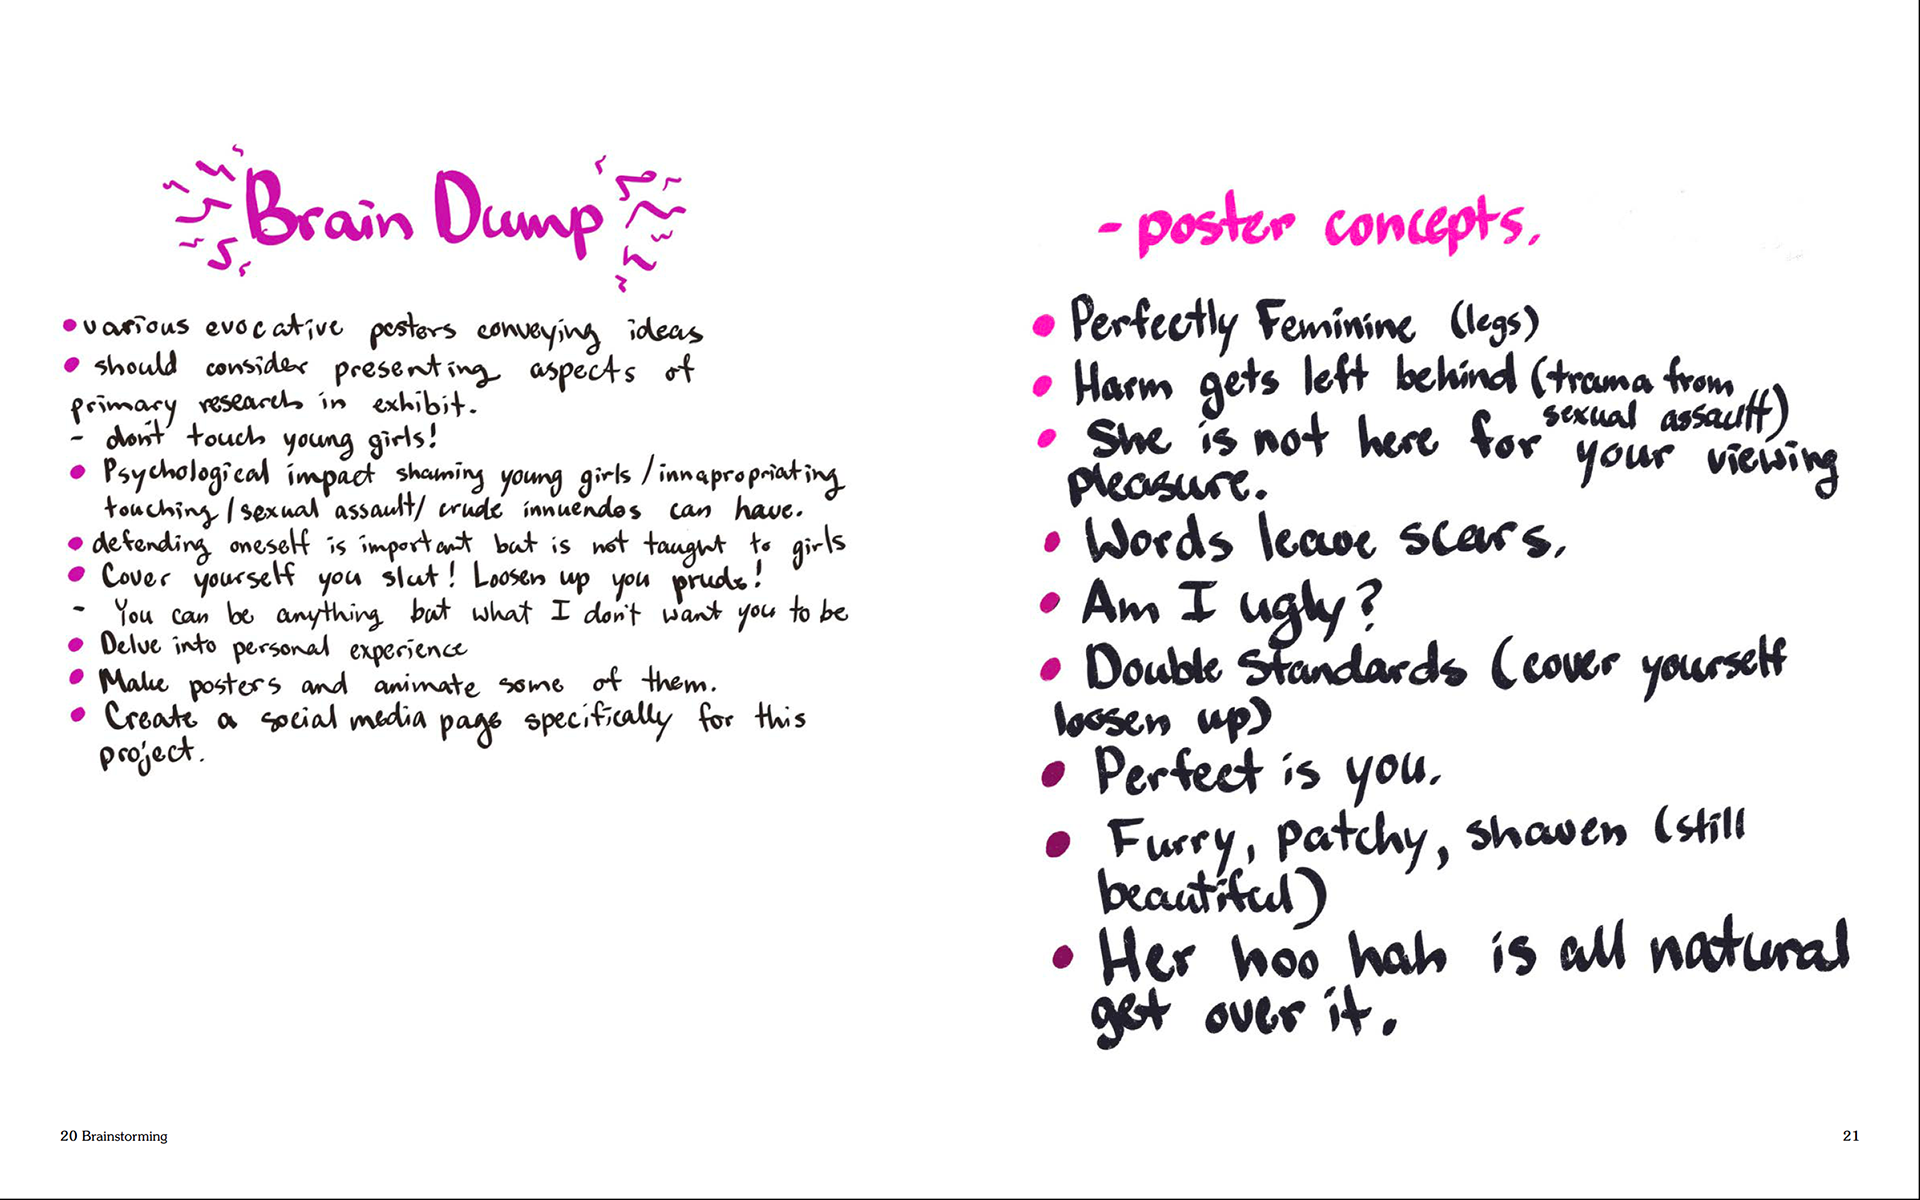 Brain Dump
• various evocative posters conveying ideas
• should consider presenting aspects of
primary research in exhibit.
- don't touch young girls!
• Psychological impact shaming young girls /innapropriating
touching/sexual assault/ crude innuendos can have.
• defending oneself is important but is not taught to girls
• Cover yourself you slut! Loosen up you prude!
- You can be anything but what I don't want you to be
• Delve into personal experience
• Make posters and animate some of them.
• Create a social media page specifically for this
project.
20 Brainstorming
- poster concepts.
• Perfectly Feminine (legs)
• Harm gets left behind (trama from
sexual assault)
• She is not here for your viewing
pleasure.
• Words leave scars.
• Am I ugly?
• Double Standards (cover yourself
loosen up)
• Perfect is you.
• Furry, patchy, shaven (still
beautiful)
• Her hoo hah is all natural
get over it.
21